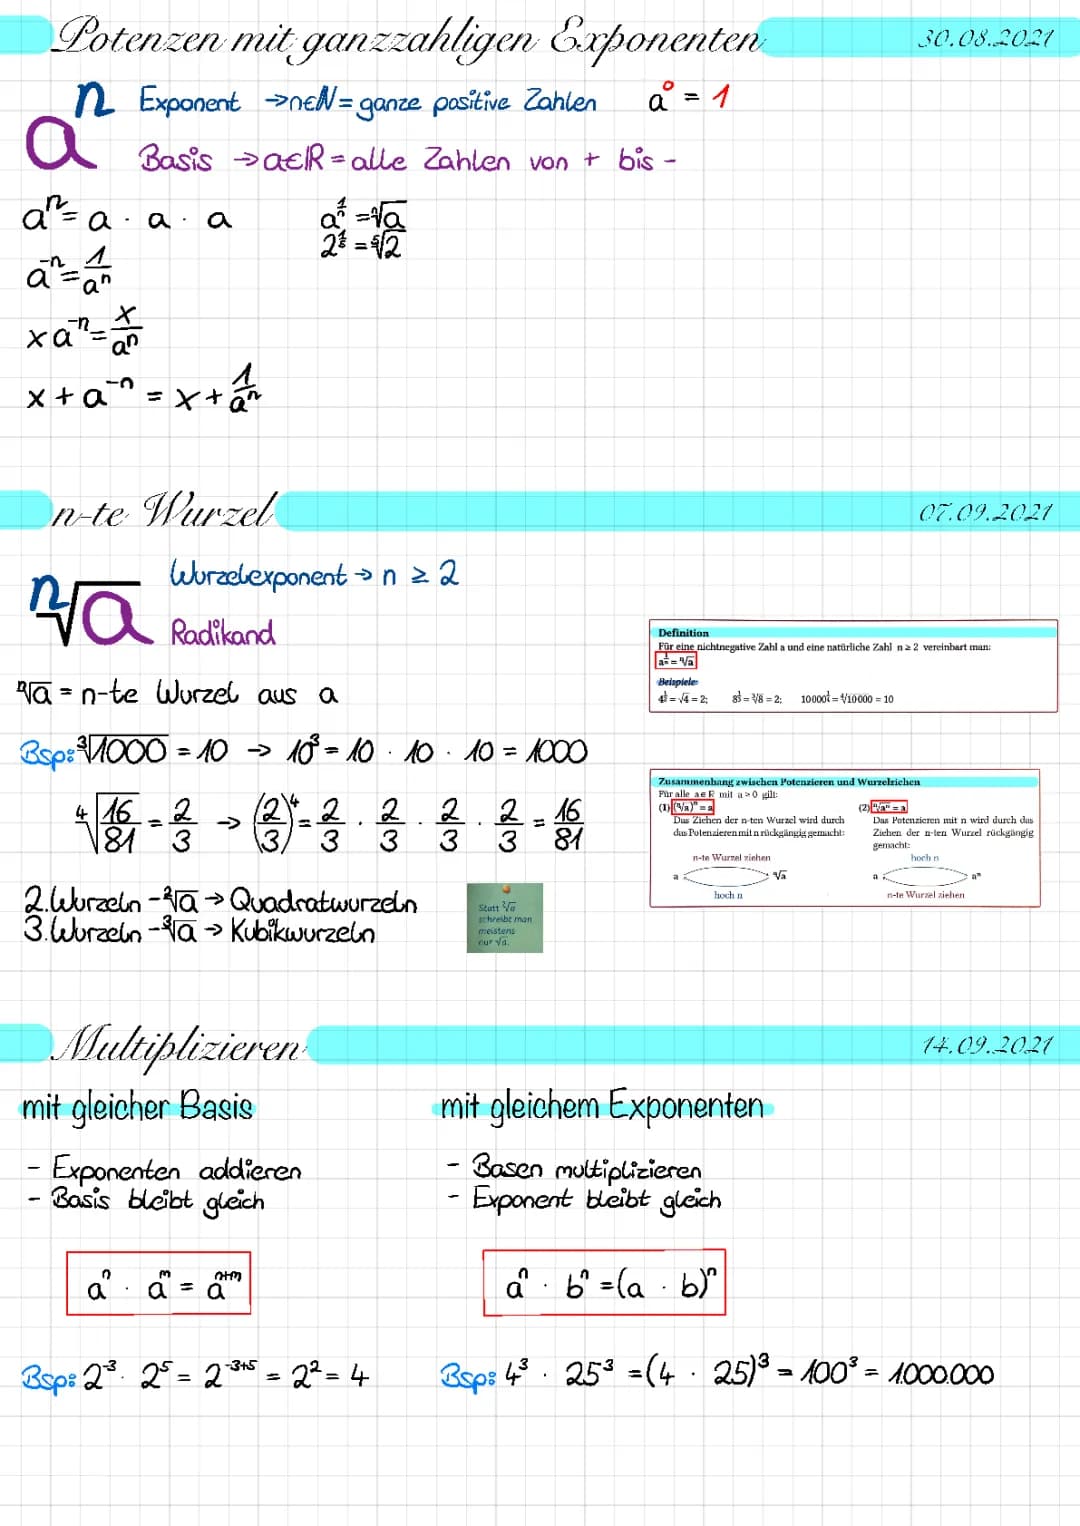 Potenzen mit ganzzahligen Exponenten 30.08.2021
n Exponent → n∈N = ganze positive Zahlen a⁰ = 1
a Basis → a∈R = alle Zahlen von + bis -
aⁿ = a · a · a
a^(1/n) = ⁿ√a
2^(1/5) = ⁵√2
a⁻ⁿ = 1/aⁿ
x a⁻ⁿ = x/aⁿ
x + a⁻ⁿ = x + 1/aⁿ
n-te Wurzel 07.09.2021
ⁿ√a
Wurzelexponent → n ≥ 2
Radikand
ⁿ√a = n-te Wurzel aus a
Bsp: ³√1000 = 10 → 10³ = 10 · 10 · 10 = 1000
⁴√(16/81) = 2/3 → (2/3)⁴ = 2/3 · 2/3 · 2/3 · 2/3 = 16/81
2.Wurzeln - ²√a → Quadratwurzeln
3.Wurzeln - ³√a → Kubikwurzeln
Statt ²√a
schreibt man
meistens
nur √a.
Definition
Für eine nichtnegative Zahl a und eine natürliche Zahl n ≥ 2 vereinbart man:
a^(1/n) = ⁿ√a
Beispiele:
4^(1/2) = √4 = 2; 8^(1/3) = ³√8 = 2; 10000^(1/4) = ⁴√10000 = 10
Zusammenhang zwischen Potenzieren und Wurzelziehen
Für alle a∈R mit a > 0 gilt:
(1) (ⁿ√a)ⁿ = a
Das Ziehen der n-ten Wurzel wird durch
das Potenzieren mit n rückgängig gemacht:
n-te Wurzel ziehen
a ⁿ√a
hoch n
(2) ⁿ√aⁿ = a
Das Potenzieren mit n wird durch das
Ziehen der n-ten Wurzel rückgängig
gemacht:
hoch n
a aⁿ
n-te Wurzel ziehen
Multiplizieren 14.09.2021
mit gleicher Basis
- Exponenten addieren
- Basis bleibt gleich
aⁿ · aᵐ = aⁿ⁺ᵐ
Bsp: 2⁻³ · 2⁵ = 2⁻³⁺⁵ = 2² = 4
mit gleichem Exponenten
- Basen multiplizieren
- Exponent bleibt gleich
aⁿ · bⁿ = (a · b)ⁿ
Bsp: 4³ · 25³ = (4 · 25)³ = 100³ = 1.000.000